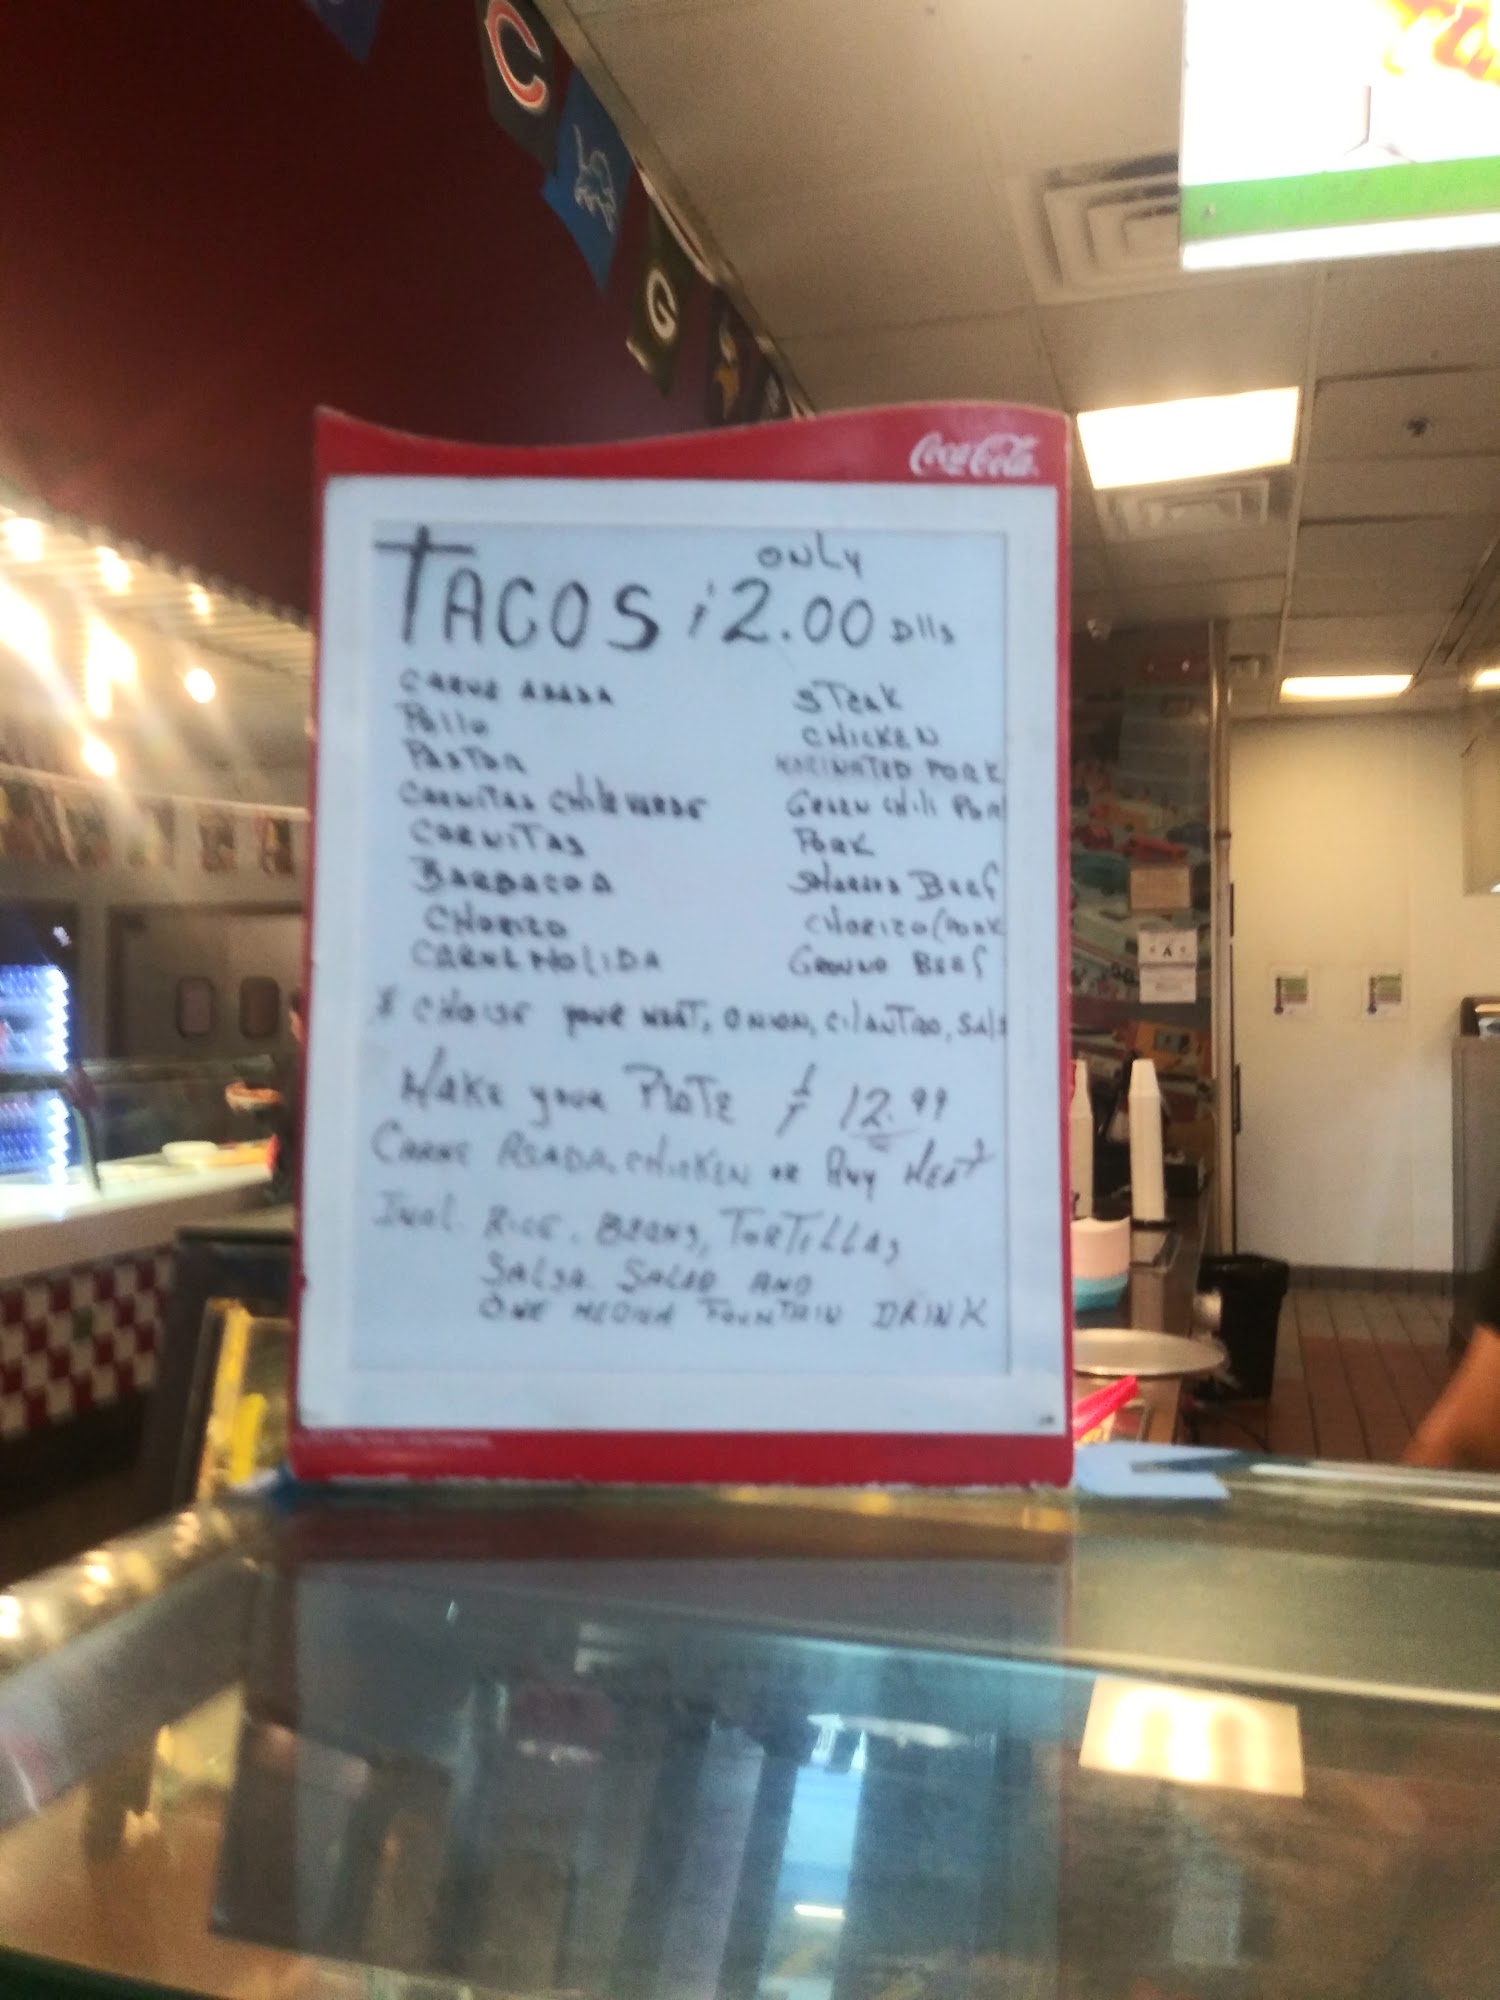 C
G
Coca-Cola
ONLY
TACOS ¡2.00 Dlls
CARNE ASADA STEAK
Pollo CHICKEN
PASTOR MARINATED PORK
CARNITAS CHILE VERDE GREEN CHILI POR
CARNITAS PORK
BARBACOA BEEF
CHORIZO CHORIZO (PORK
CARNE MOLIDA GROUND BEEF
* CHOISE YOUR MEAT, ONION, CILANTRO, SALS
MAKE YOUR PLATE $ 12.99
CARNE ASADA, CHICKEN OR ANY MEAT
Incl. RICE, BEANS, TORTILLAS,
SALSA, SALAD AND
ONE MEDIUM FOUNTAIN DRINK
A